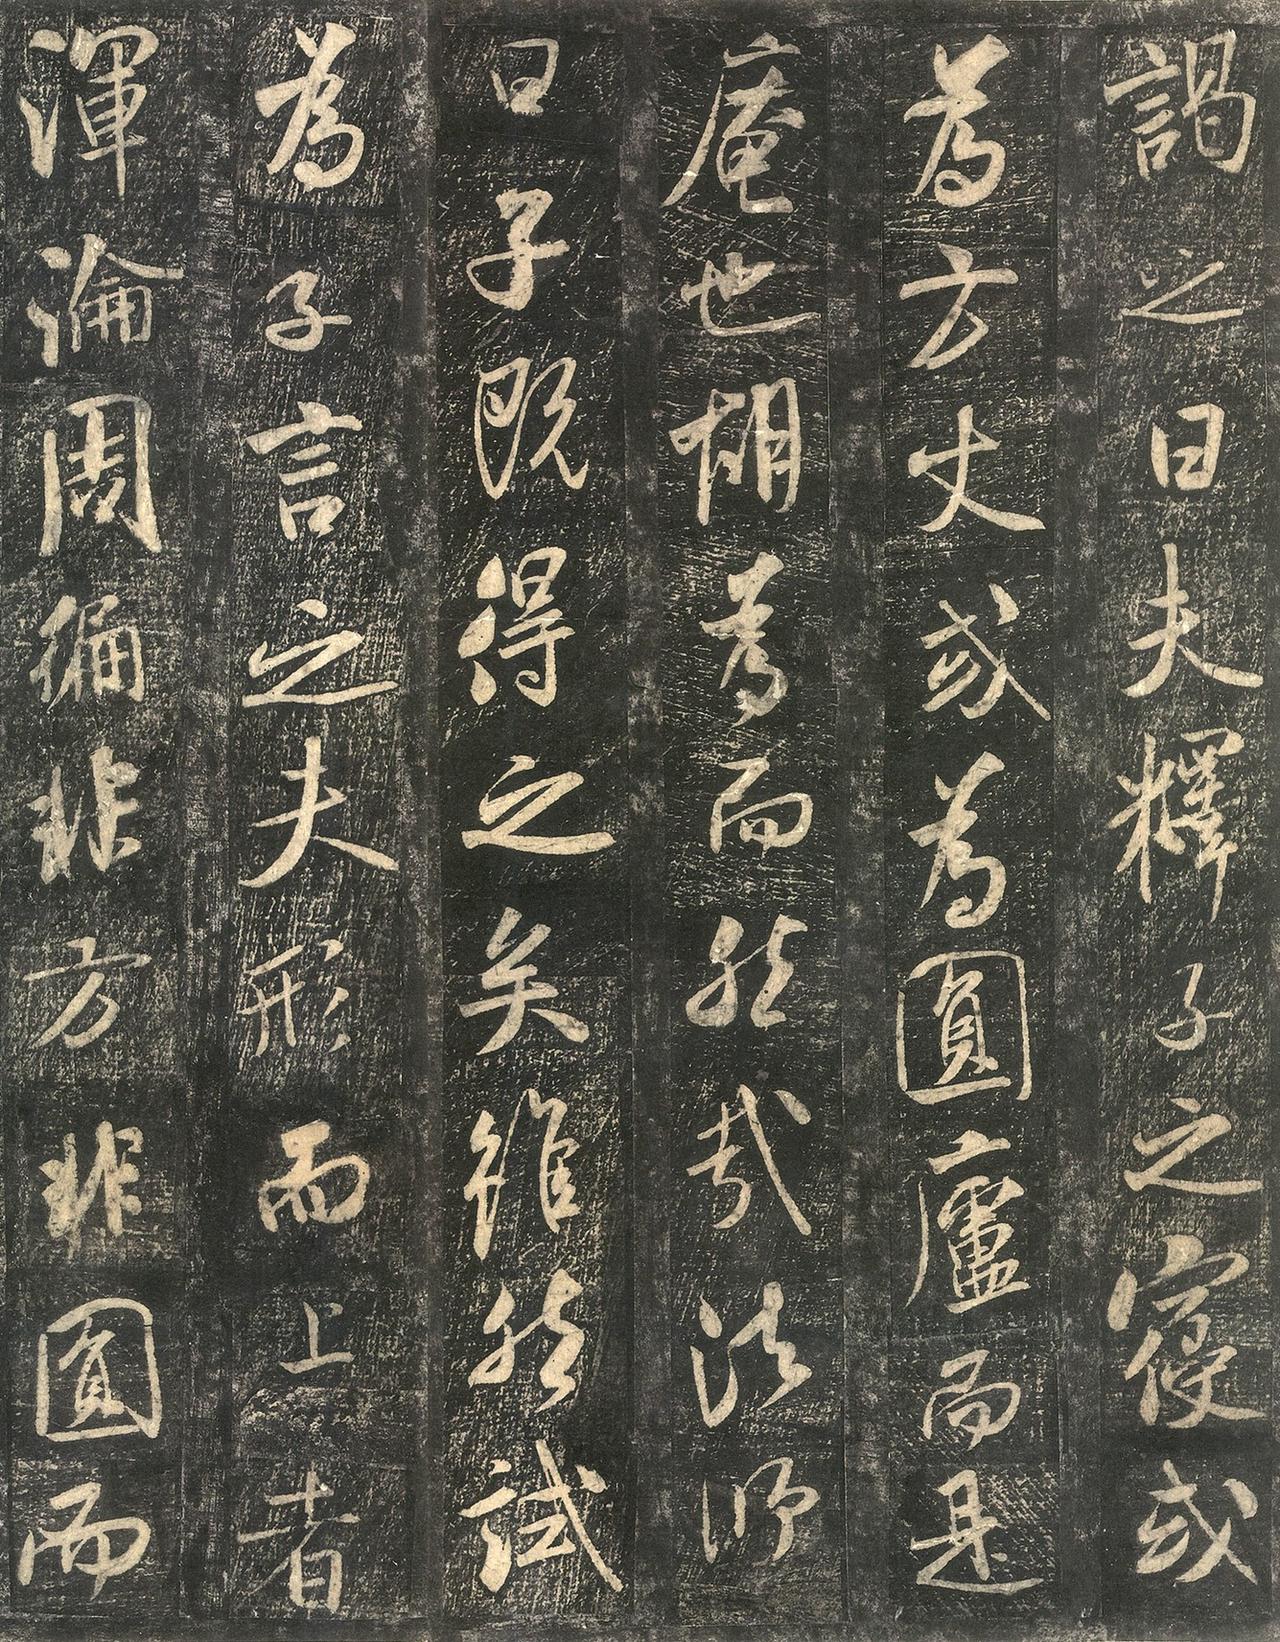 謁之曰夫釋子之寢或
為方丈或為圓廬而是
庵也胡為而然哉法師
曰子既得之矣雖然試
為子言之夫形而上者
渾淪周徧非方非圓而